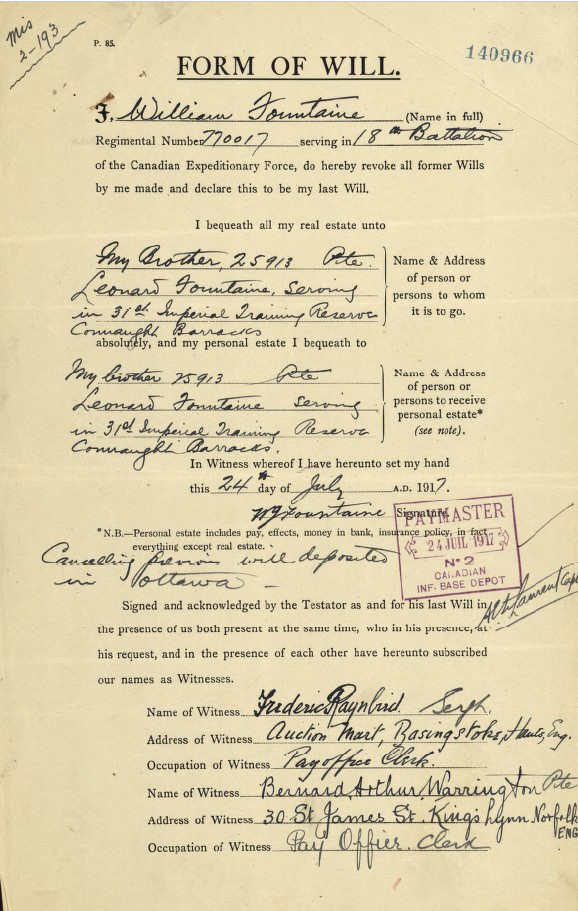 Mis
2-193
P. 85.
140966
FORM OF WILL.
I, William Fountaine (Name in full)
Regimental Number 770017 serving in 18th Battalion
of the Canadian Expeditionary Force, do hereby revoke all former Wills
by me made and declare this to be my last Will.
I bequeath all my real estate unto
My Brother, 25913 Pte.
Leonard Fountaine, Serving
in 31st Imperial Training Reserve
Connaught Barracks
Name & Address
of person or
persons to whom
it is to go.
absolutely, and my personal estate I bequeath to
My brother 25913 Pte
Leonard Fountaine Serving
in 31st Imperial Training Reserve
Connaught Barracks.
Name & Address
of person or
persons to receive
personal estate*
(see note).
In Witness whereof I have hereunto set my hand
this 24th day of July A.D. 1917.
WJ Fountaine Signature
*N.B.—Personal estate includes pay, effects, money in bank, insurance policy, in fact
everything except real estate.
Cancelling previous will deposited
in Ottawa -
PAYMASTER
24 JUIL 1917
No 2
CANADIAN
INF. BASE DEPOT
Signed and acknowledged by the Testator as and for his last Will in
the presence of us both present at the same time, who in his presence, at
his request, and in the presence of each other have hereunto subscribed
our names as Witnesses.
Name of Witness Frederic Raynbird. Sergt.
Address of Witness Auction Mart, Basingstoke, Hants, Eng.
Occupation of Witness Pay office Clerk.
Name of Witness Bernard Arthur Warrington Pte
Address of Witness 30 St James St. King's Lynn. Norfolk
ENG
Occupation of Witness Pay Officer. Clerk